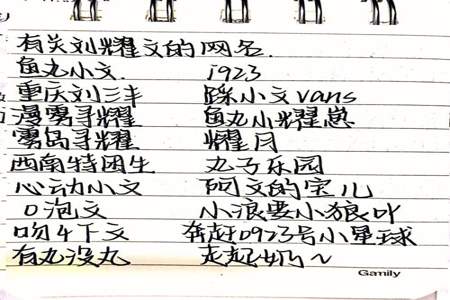 有关刘耀文的网名.
鱼丸小文. 1923
重庆刘三丰 踩小文vans
漫雾寻耀 鱼丸小耀憨
雾岛寻耀 耀月
西南特困生 丸子乐园
心动小文 阿文的宝儿
口泡文 小浪要小狼叶
吻4下文 奔赶0923号小星球
有丸没丸 走起奶~
Gamily